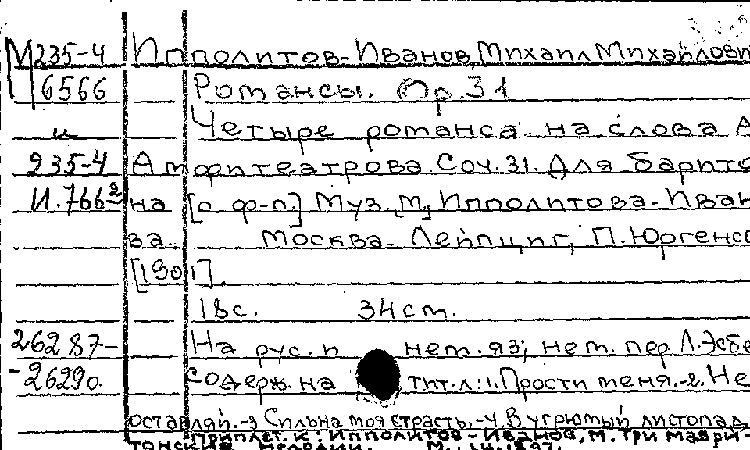 М 235-4 Ипполитов-Иванов, Михаил Михайлович
6566 Романсы. Op. 31
и Четыре романса на слова А
935-4 Амфитеатрова. Соч. 31. Для барито
И.766² на [с ф-п.] Муз. М. Ипполитова-Иван
ва. Москва-Лейпциг, П. Юргенсо
[1901].
18с. 34см.
26287- На рус. и нем. яз; нем. пер Л. Эсбе
-26290. Содерж. на тит.л: 1. Прости меня.-2. Не
оставляй.-3 Сильна моя страсть.-4. В угрюмый листопад
Приплет. к: Ипполитов-Иванов, М. Три маври-
танские мелодии. М.